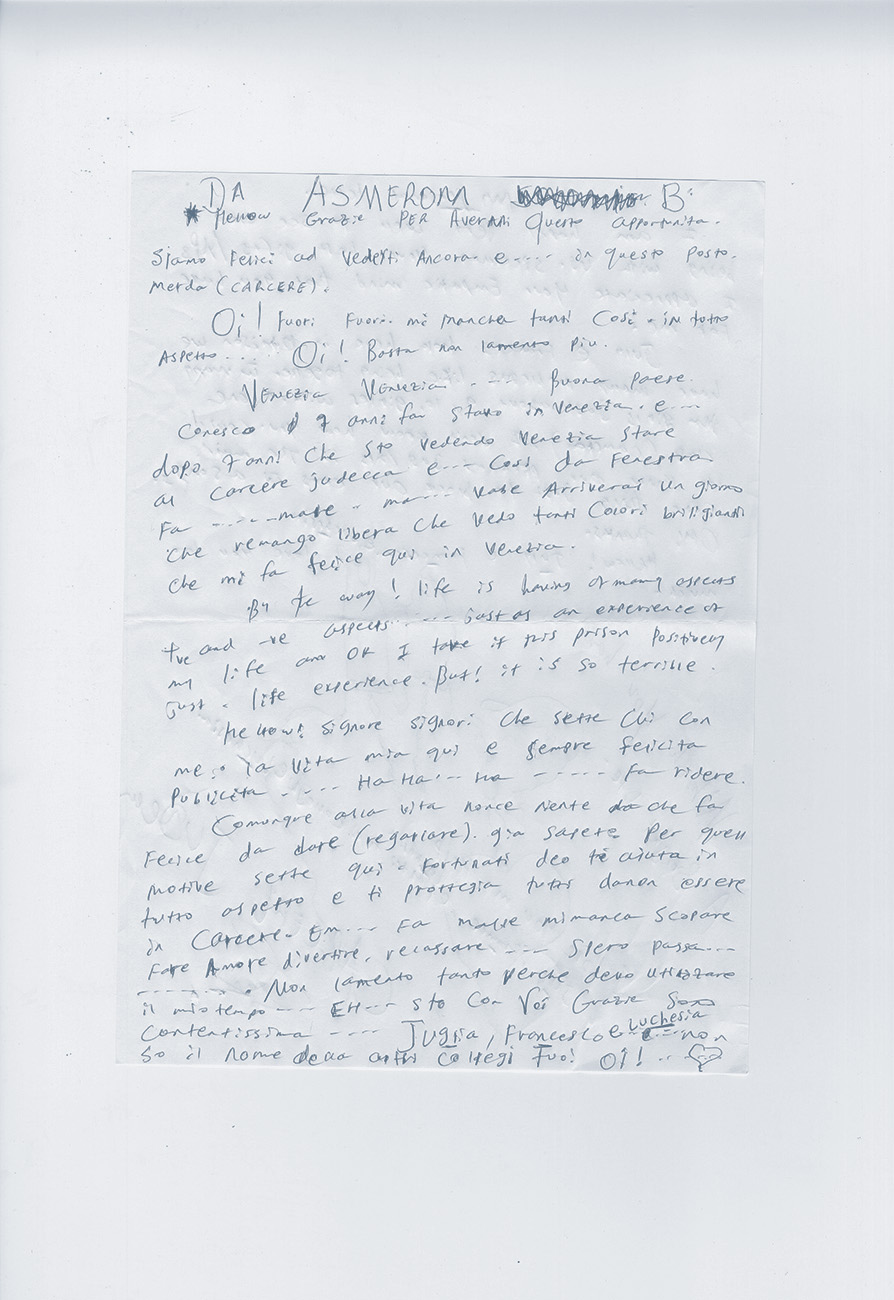 DA ASMEROM B:
* Hellow Grazie PER Avermi Questo opportunita.
Siamo Felici ad Vederti Ancora. e.... in questo posto.
Merda (CARCERE).
Oi! Fuori Fuori. mi mancha tanti Cosi - in tutto
Aspetto.... Oi! Basta non lamento piu.
VENEZIA VENEZIA. --- Buona paese.
Conesco 7 anni fa stavo in Venezia. e....
dopo 7 anni Che sto vedendo Venezia stare
al carcere judecca e--- Cosi da Fenestra
Fa -----male - ma---- vabe Arriverai un giorno
Che remango libera Che vedo tanti Colori briligianti
Che mi fa felice qui in Venezia.
By te way! life is having of many aspects
+ve and -ve aspects...... Just as an experience of
my life and OK I take it this prison positively
Just - life experience. But! it is so terrible.
Hellow! Signore signori Che sette Chi con
me: o la Vita mia qui e sempre felicita
Publicita ---- Ha Ha -- Ha ----- Fa ridere.
Comunqre alla vita nonce niente da che fa
Felice da dare (regarlare). gia sapete Per quell
motive sette qui - Fortunati deo te aiuta in
tutto aspetto e ti prottegia tutti danon essere
in Carcere. Em... Fa malle mimanca Scopare
Fare Amore divertire, recassare ---- Spero passa---
-------. Non lamento tanto perche devo utilizzare
il mio tempo --- EH--- sto Con Voi Grazie Sono
Contentissima ---- Juglia, Francesco e Luchesia non
So il nome della altri collegi Tuo! Oi! ..